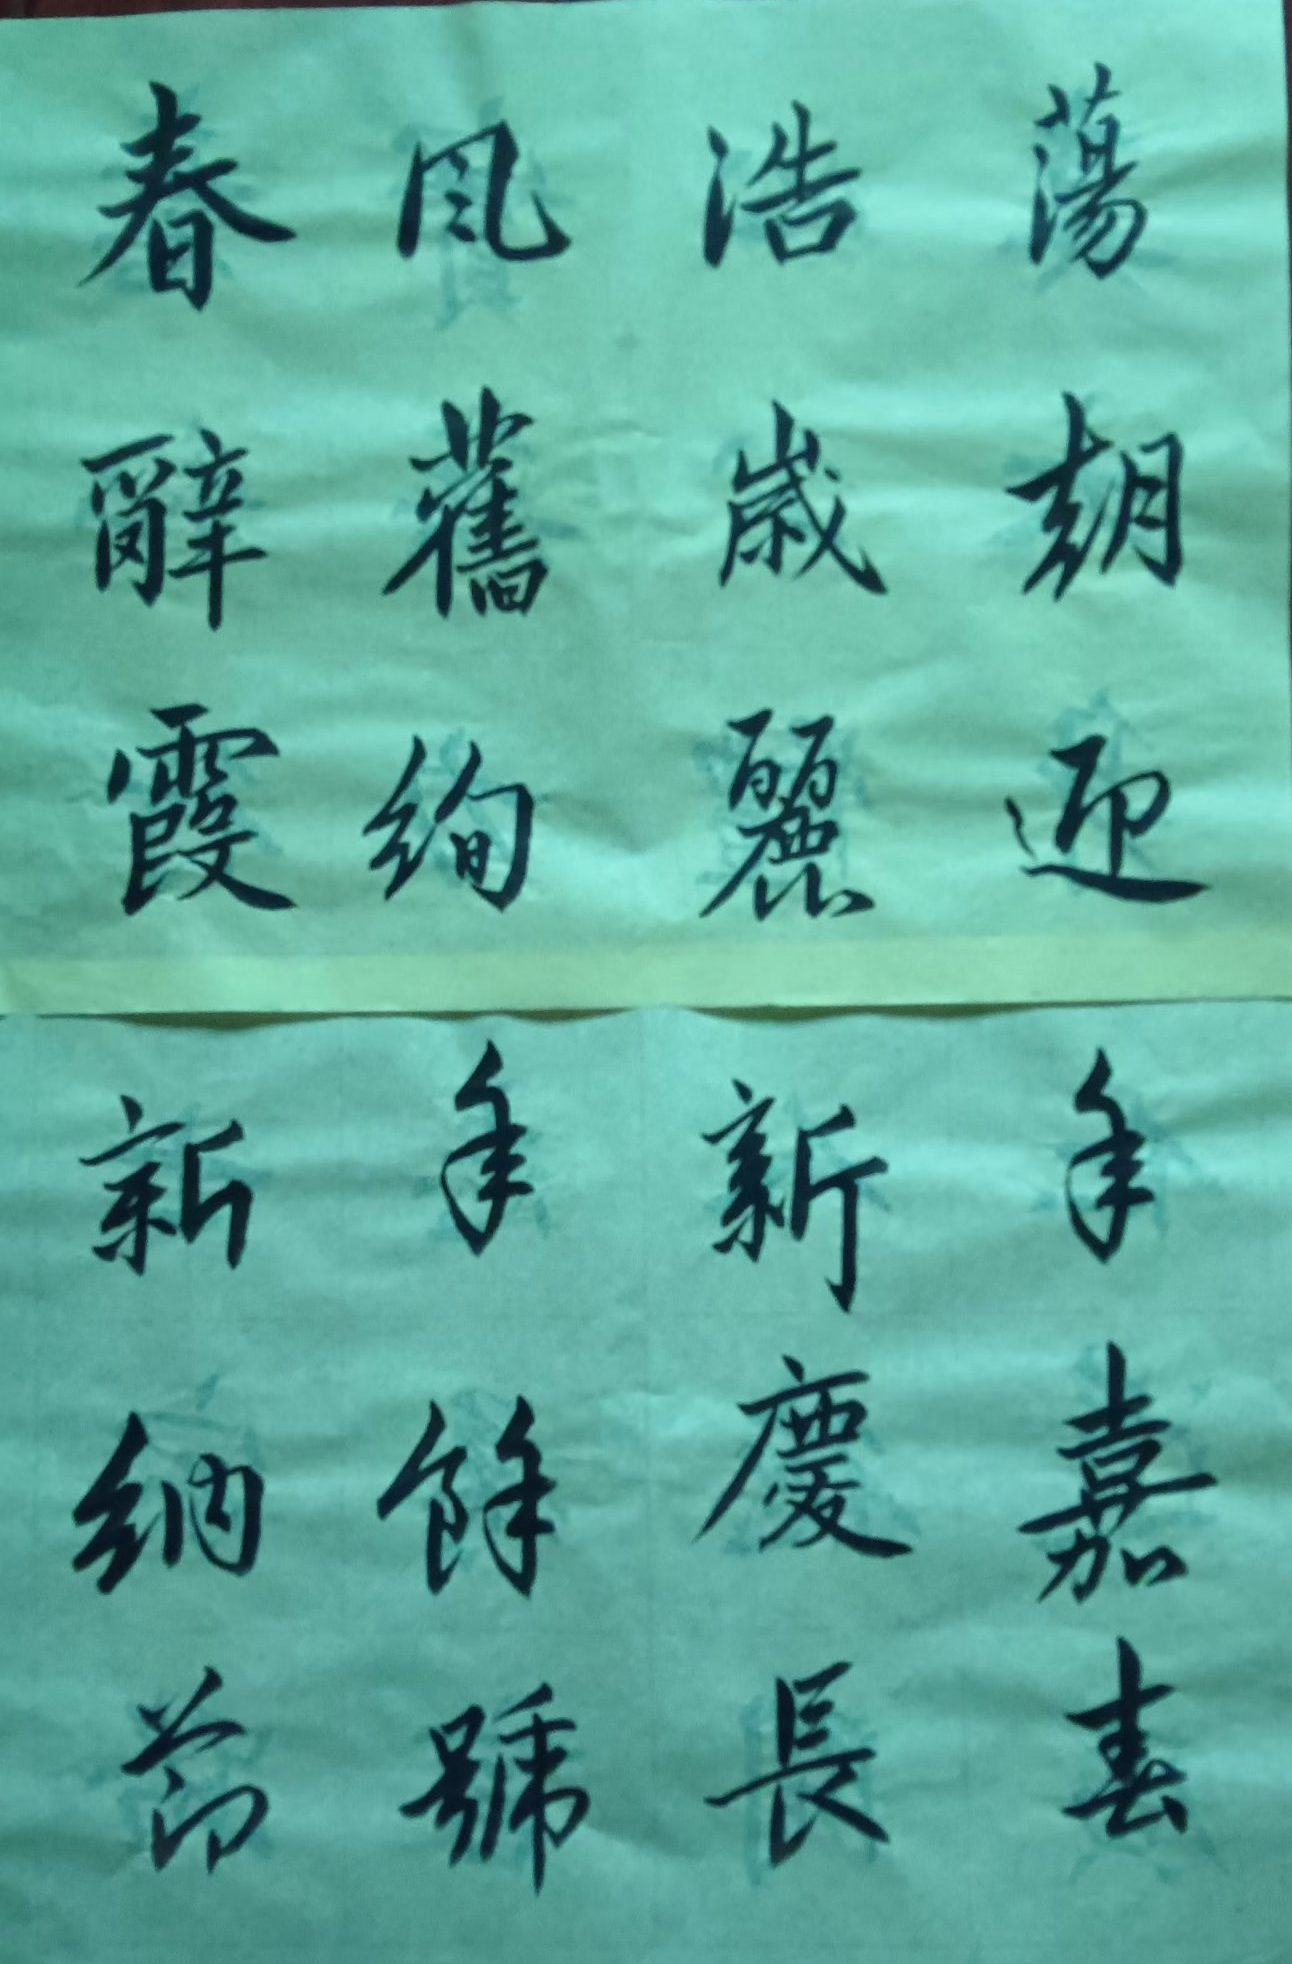 春風浩蕩
辭舊歲朝
霞絢麗迎
新年新年
納餘慶嘉
節號長春